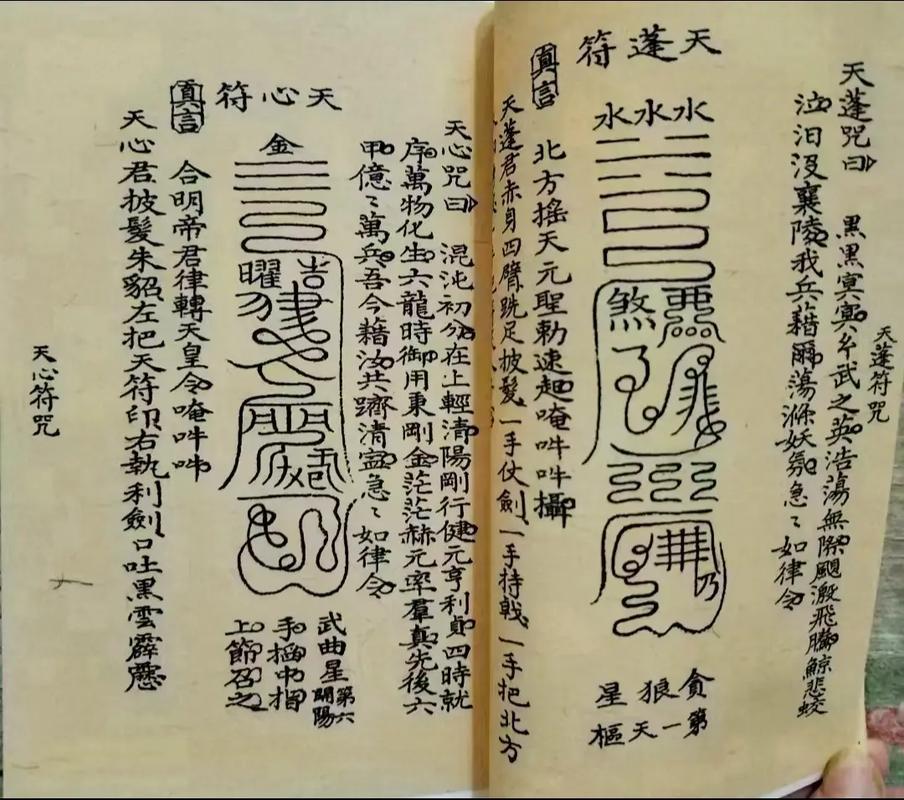 天蓬符咒
天蓬咒曰 黑黑冥冥玄武之英浩蕩無際颶激飛騰鯨悲蛟
泣汨沒襄陵我兵藉爾蕩滌妖氛急〻如律令
天蓬符
水水水
煞
乃
貪狼星
第一天樞
真言 北方搖天元聖勅速起唵吽吽攝
天蓬君赤身四臂跣足披髮一手仗劍一手持戟一手把北方
天心咒曰 混沌初分在上輕清陽剛行健元亨利貞四時就
序萬物化生六龍時御用東剛金茫茫赫元率羣真先後六
甲億〻萬兵吾今藉汝共躋清寍急〻如律令
天心符
金
曜
武曲星第六開陽
手掐中指
上節召之
真言 合明帝君律轉天皇令唵吽吽
天心君披髮朱貂左把天符印右執利劍口吐黑雲霹靂
天心符咒